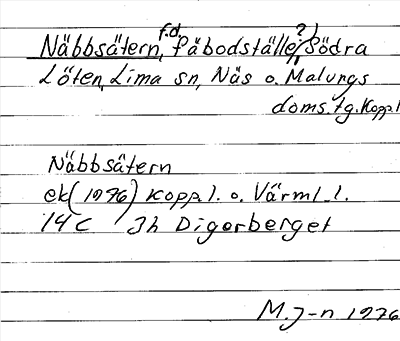 Näbbsätern, f.d. fäbodställe(?) Södra
Löten, Lima sn, Näs o. Malungs
doms. tg. Kopp. l
Näbbsätern
ek (1976) Kopp. l. o. Värml. l.
14 C 3h Digerberget
M. J-n 1976